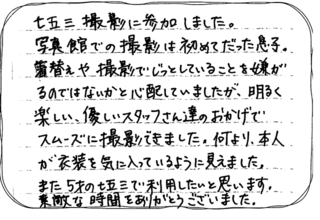 七五三撮影に参加しました。
写真館での撮影は初めてだった息子。
着替えや撮影でじっとしていることを嫌が
るのではないかと心配していましたが、明るく
楽しい、優しいスタッフさん達のおかげで
スムーズに撮影できました。何より、本人
が衣装を気に入っているように見えました。
また5才の七五三で利用したいと思います。
素敵な時間をありがとうございました。